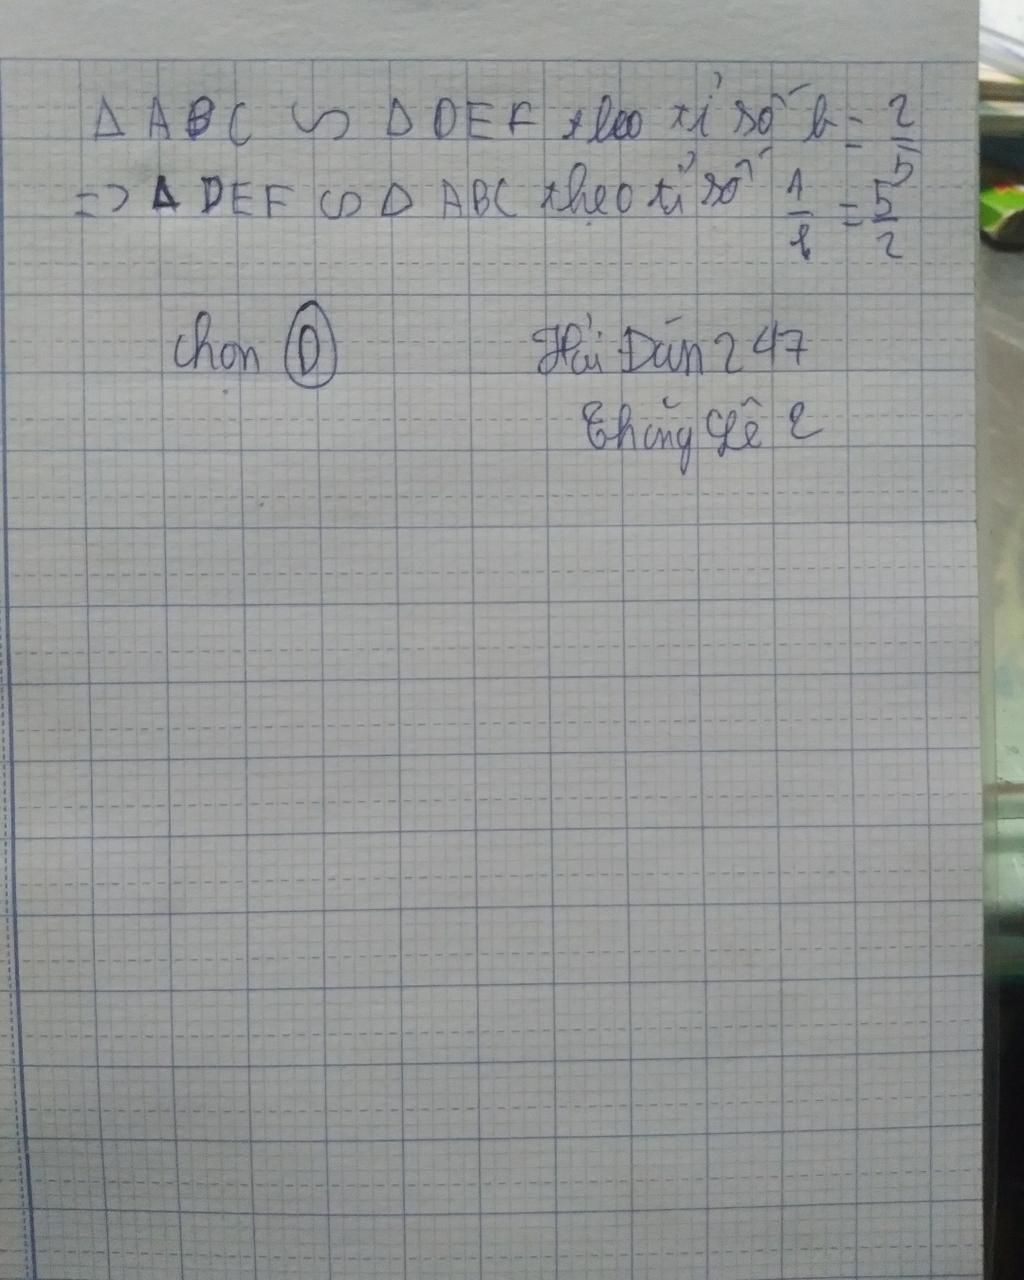 Δ ABC ∽ Δ DEF theo tỉ số k = 2/5
=> Δ DEF ∽ Δ ABC theo tỉ số 1/k = 5/2
chọn D
Hỏi Đáp 247